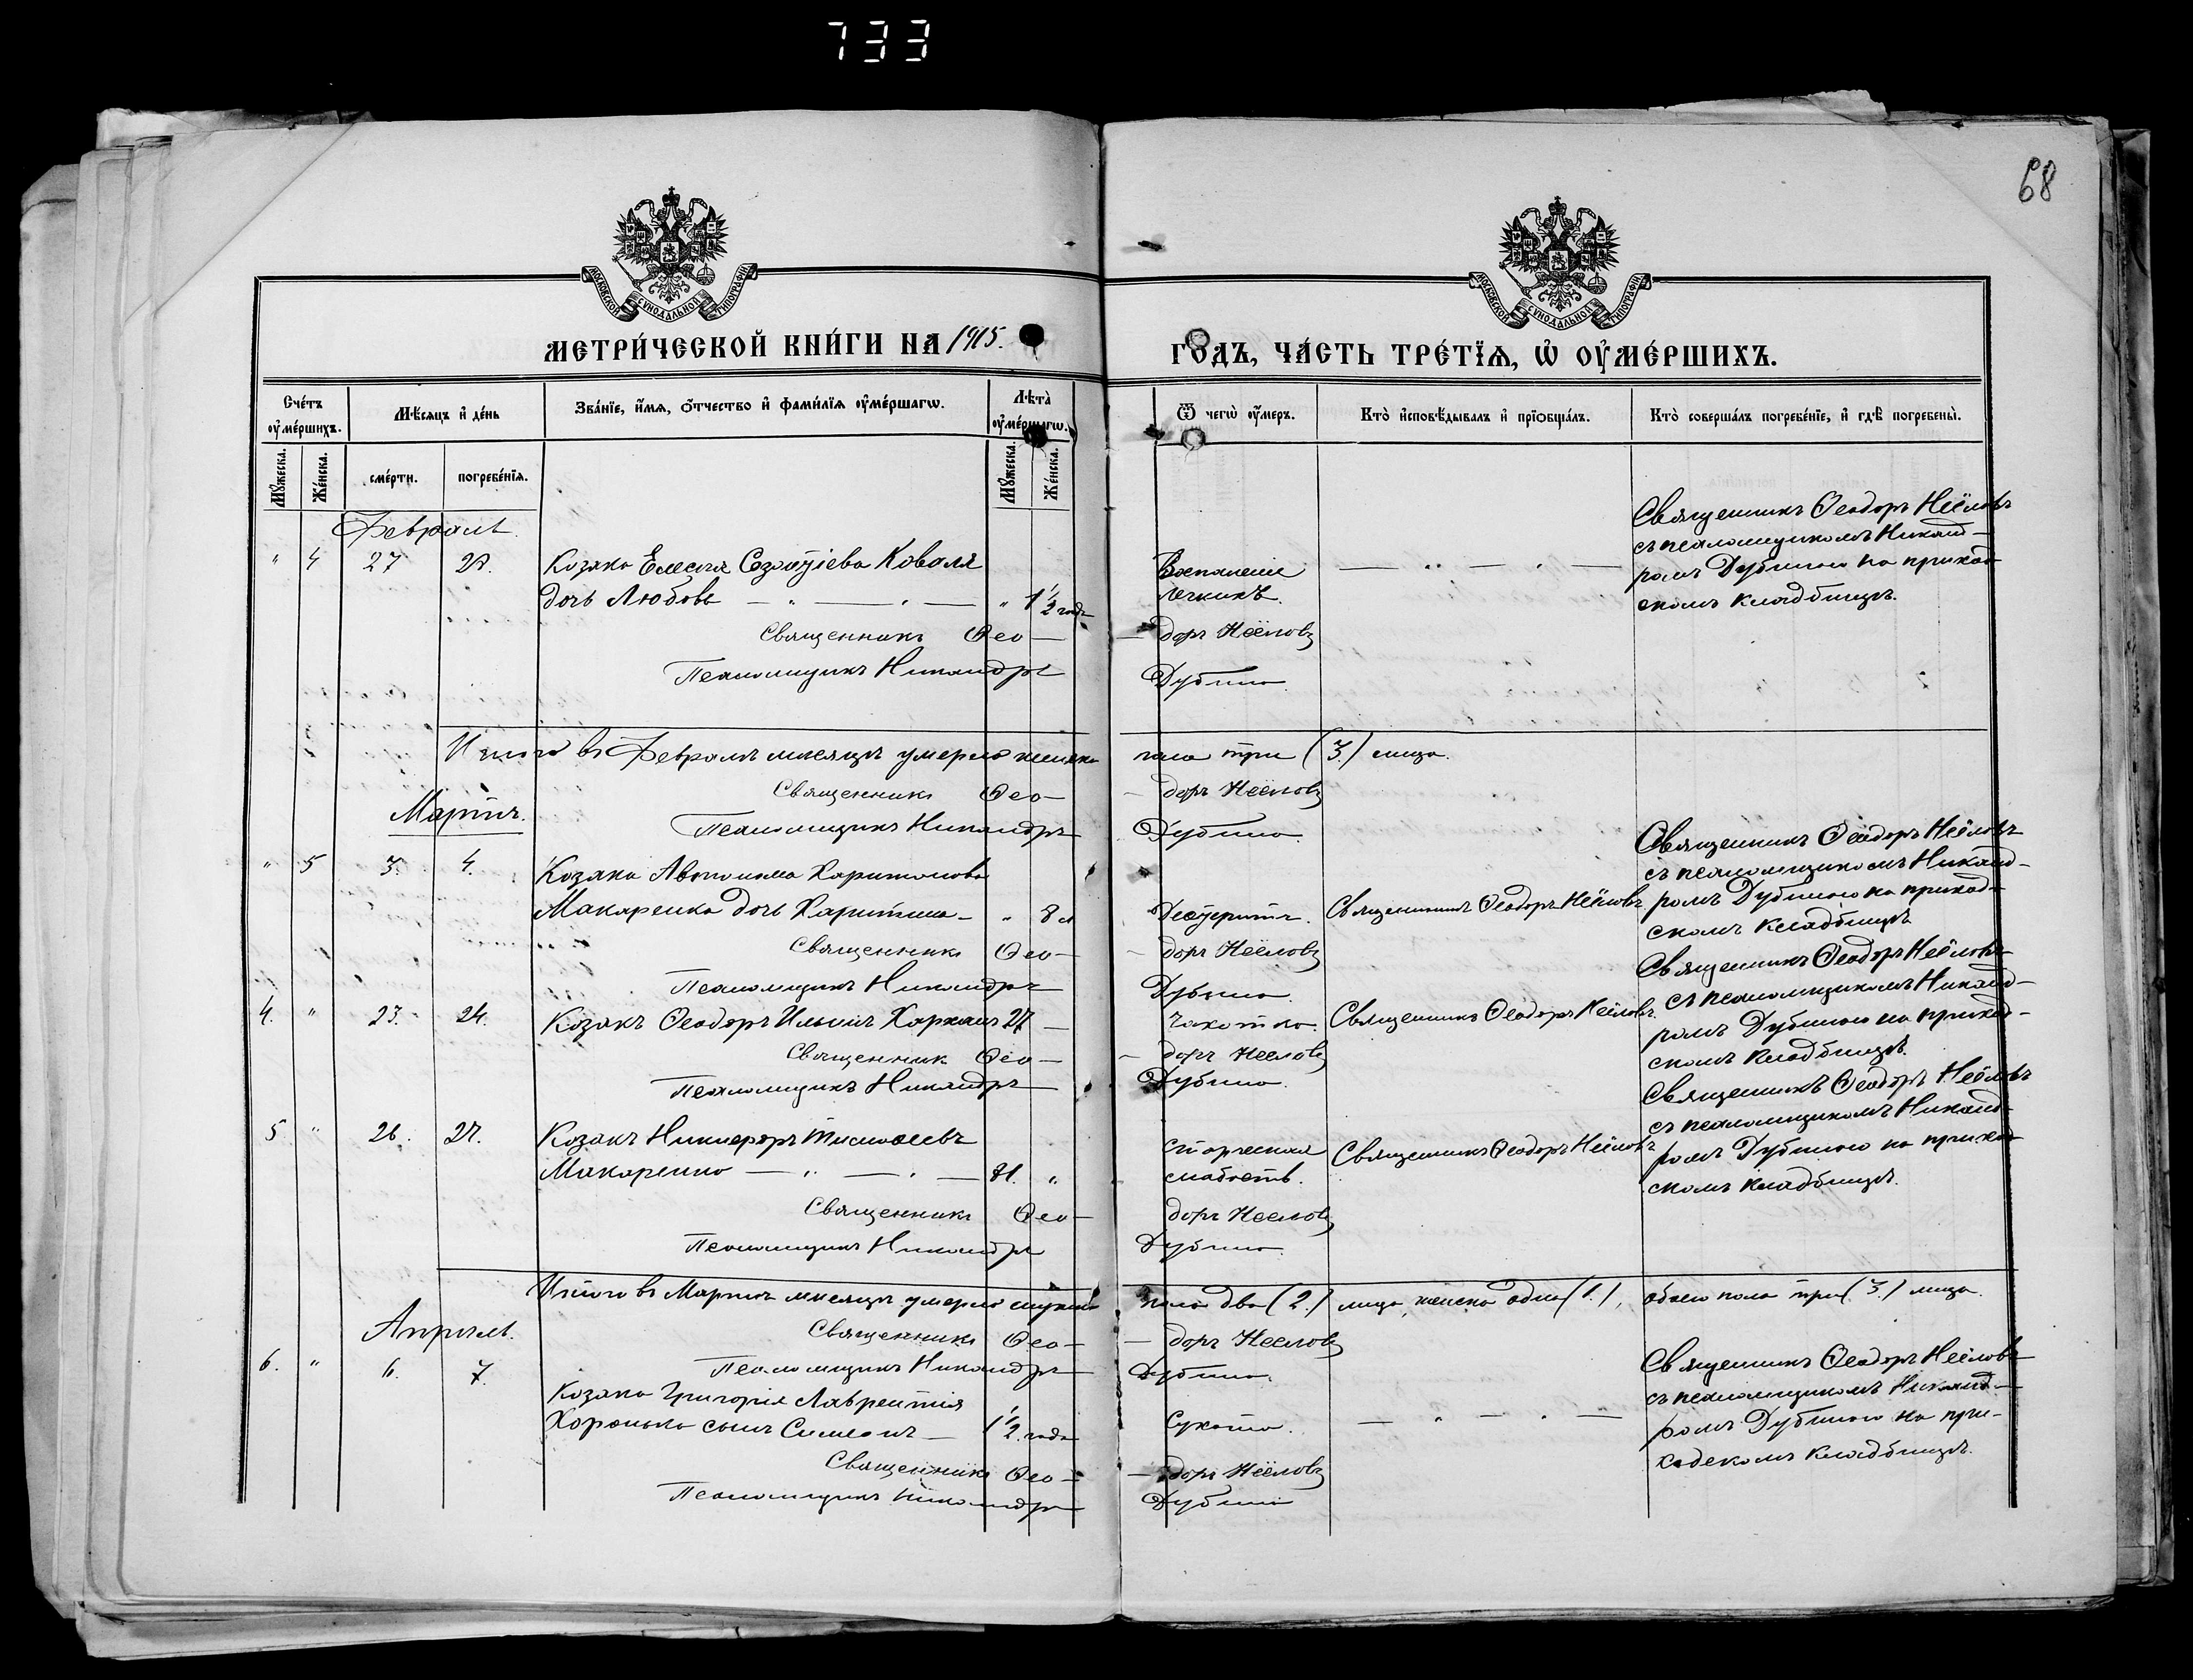 733
68
МОСКОВСКОЙ СѴНОДАЛЬНОЙ ТИПОГРАФІИ
МОСКОВСКОЙ СѴНОДАЛЬНОЙ ТИПОГРАФІИ
МЕТРИ́ЧЕСКОЙ КНИ́ГИ НА 1915.
ГОДЪ, ЧА́СТЬ ТРЕ́ТЇѦ, Ѡ҆ ОУ҆МЕ́РШИХЪ.
Сче́тъ оу҆ме́ршихъ.
Мѣ́сяцъ и҆ де́нь
Зва́нїе, и҆́мѧ, ѻ҆́тчество и҆ фами́лїѧ оу҆ме́ршагѡ.
Лѣ́та оу҆ме́ршагѡ.
Ѿ чегѡ̀ оу҆́меръ.
Кто̀ и҆сповѣ́дывалъ и҆ прїѻбща́лъ.
Кто̀ соверша́лъ погребе́нїе, и҆ гдѣ̀ погребены̀.
Мꙋ́жеска.
Же́нска.
сме́рти.
погребе́нїѧ.
Мꙋ́жеска.
Же́нска.
Февраль.
" 4 27 28. Козака Созонтіева Коваля
дочь Любовь — " — " — " 1 1/2 года
Воспаленіе
легкихъ.
— " — " —
Священникъ Ѳеодоръ Неёловъ
съ псаломщикомъ Никанд-
ромъ Дубиною на приход-
скомъ кладбищѣ.
Священникъ Ѳео— — доръ Неёловъ
Псаломщикъ Никандръ Дубина.
Итого въ Февралѣ мѣсяцѣ умерло женска пола три (3.) лица.
Священникъ Ѳео— — доръ Неёловъ
Мартъ.
Псаломщикъ Никандръ Дубина.
" 5 3. 4. Козака Автонома Харитонова
Макаренка дочь Харитина — " 8 л
Дифтеритъ.
Священникъ Ѳеодоръ Неёловъ
Священникъ Ѳеодоръ Неёловъ
съ псаломщикомъ Никанд-
ромъ Дубиною на приход-
скомъ кладбищѣ
Священникъ Ѳео— — доръ Неёловъ
Псаломщикъ Никандръ Дубина.
4. " 23. 24. Козакъ Ѳеодоръ Ильинъ 27 —
Чахотка.
Священникъ Ѳеодоръ Неёловъ.
Священникъ Ѳеодоръ Неёловъ
съ псаломщикомъ Никанд-
ромъ Дубиною на приход-
скомъ кладбищѣ.
Священникъ Ѳео— — доръ Неёловъ
Псаломщикъ Никандръ Дубина.
5 " 26. 27. Козакъ Никифоръ Тимоѳеевъ
Макаренко — " — " — 81. "
Старческая
слабость.
Священникъ Ѳеодоръ Неёловъ
Священникъ Ѳеодоръ Неёловъ
съ псаломщикомъ Никанд-
ромъ Дубиною на приход-
скомъ кладбищѣ.
Священникъ Ѳео— доръ Неёловъ
Псаломщикъ Никандръ Дубина
Итого въ Мартѣ мѣсяцѣ умерло мужска пола два (2.) лица, женска одно (1.), обоего пола три (3.) лица.
Апрѣль.
Священникъ Ѳео— — доръ Неёловъ
Псаломщикъ Никандръ Дубина.
6. " 6. 7. Козака Григорія Лаврентія
Хоронька сынъ Симеонъ — 1 1/2 года
Сухота.
— " — " —
Священникъ Ѳеодоръ Неёловъ
съ псаломщикомъ Никанд-
ромъ Дубиною на при-
ходскомъ кладбищѣ.
Священникъ Ѳео— — доръ Неёловъ
Псаломщикъ Никандръ Дубина